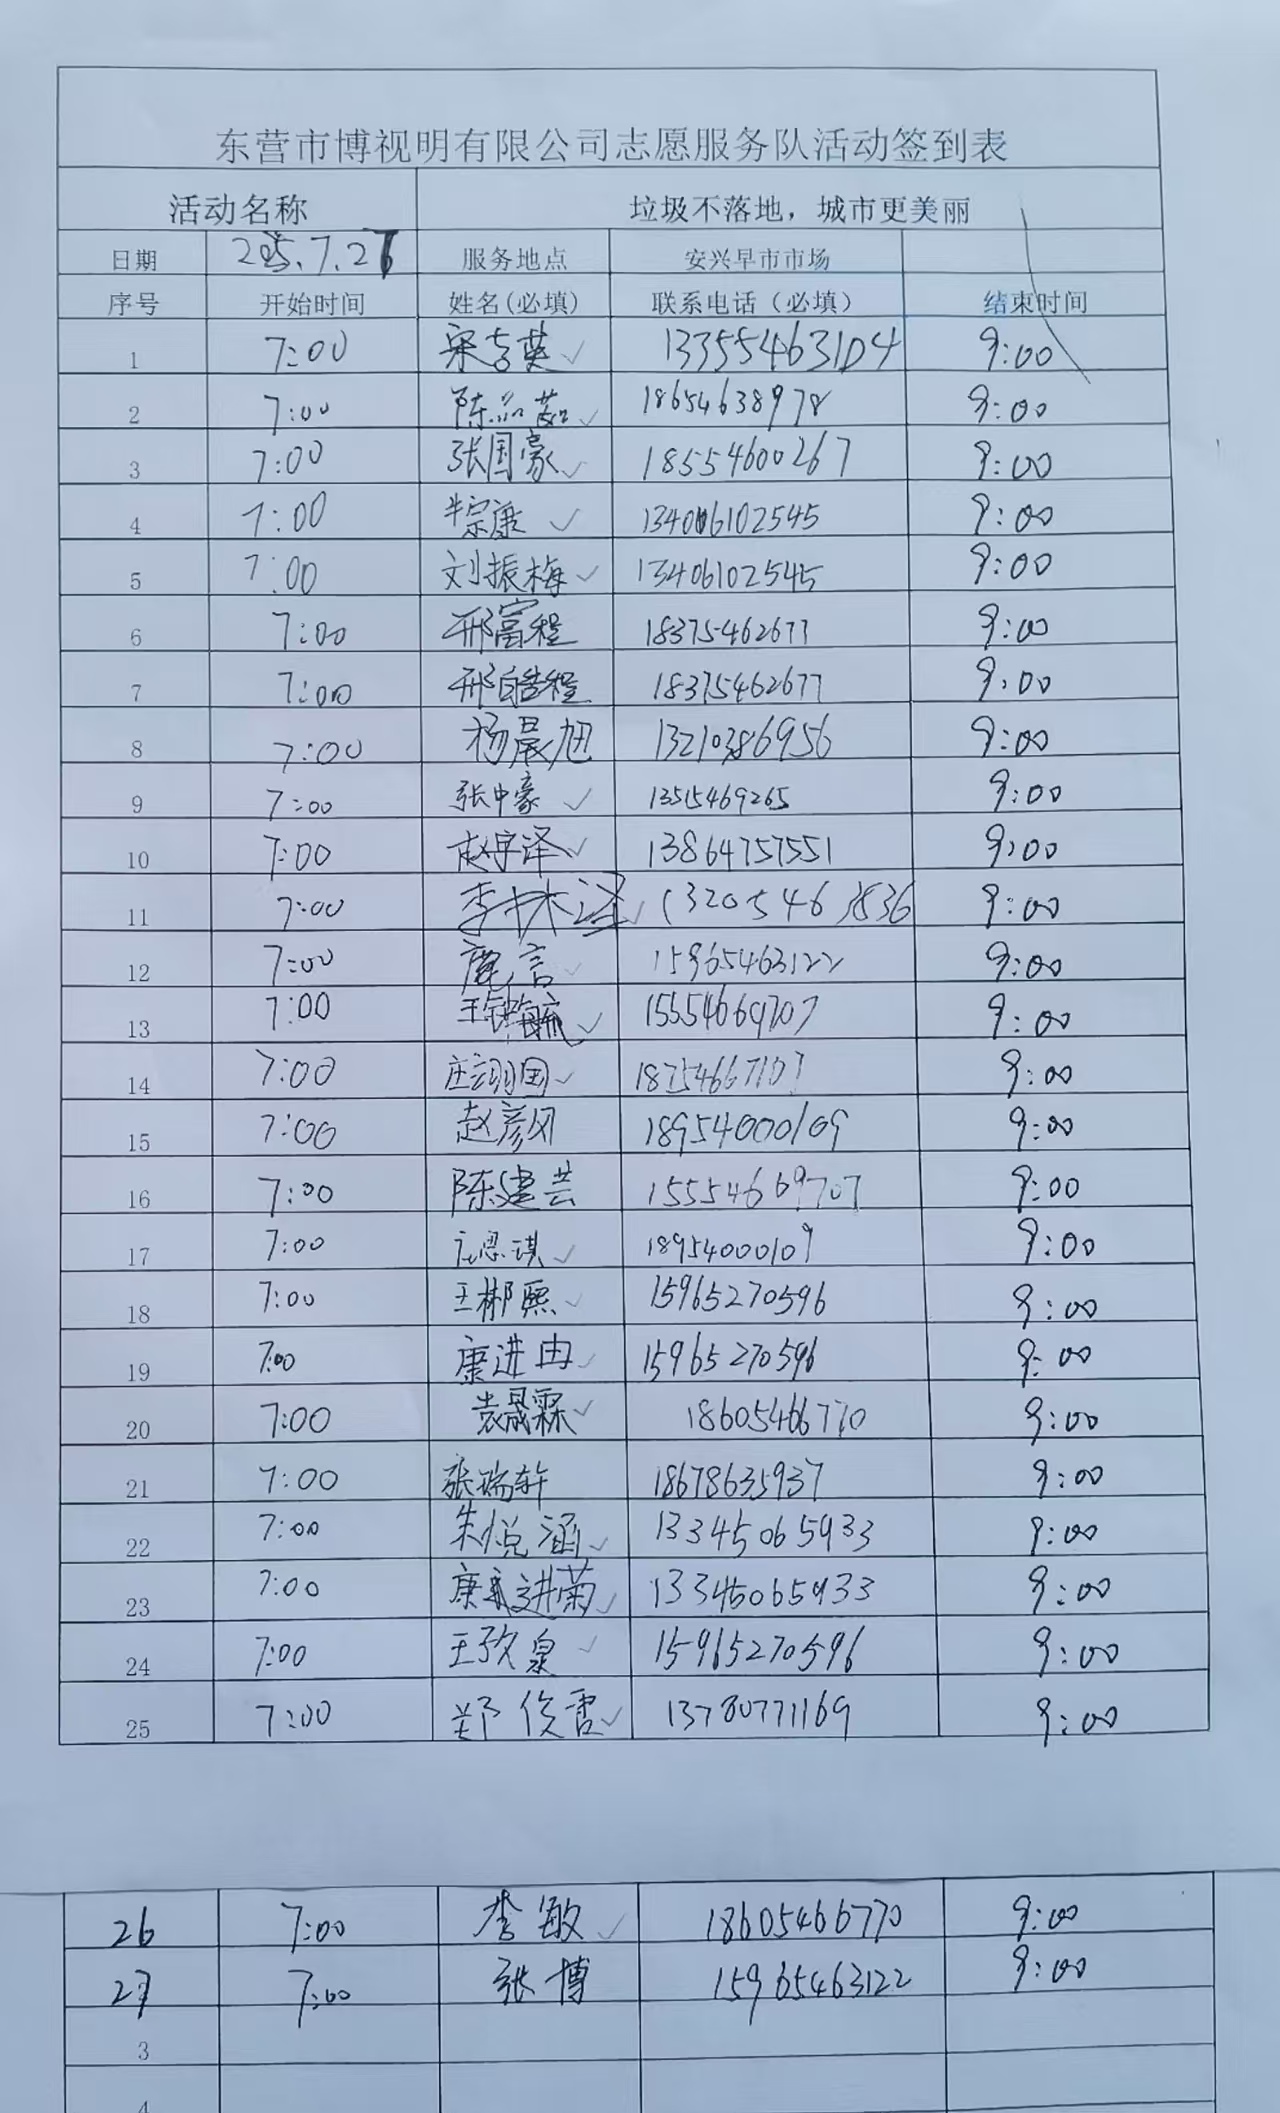 东营市博视明有限公司志愿服务队活动签到表
活动名称 垃圾不落地，城市更美丽
日期 2025.7.27 服务地点 安兴早市市场
序号 开始时间 姓名(必填) 联系电话（必填） 结束时间
1 7:00 宋吉英 13355463104 9:00
2 7:00 陈 18654638978 9:00
3 7:00 张国豪 18554600267 9:00
4 7:00 牛宗康 13406102545 9:00
5 7:00 刘振梅 13406102545 9:00
6 7:00 邢富程 18375462677 9:00
7 7:00 邢皓程 18375462677 9:00
8 7:00 杨晨旭 13210386956 9:00
9 7:00 张中豪 1351469265 9:00
10 7:00 赵宇泽 13864757551 9:00
11 7:00 李林泽 13205463836 9:00
12 7:00 言 15965463122 9:00
13 7:00 王 15554669707 9:00
14 7:00 庄翊国 18754667107 9:00
15 7:00 赵彦风 18954000109 9:00
16 7:00 陈建芸 15554669707 9:00
17 7:00 思琪 18954000109 9:00
18 7:00 王彬熙 15965270596 9:00
19 7:00 康进由 15965270596 9:00
20 7:00 袁晟霖 18605466770 9:00
21 7:00 张瑞轩 18678635937 9:00
22 7:00 朱悦涵 13345065933 9:00
23 7:00 康进菊 13345065933 9:00
24 7:00 王致泉 15965270596 9:00
25 7:00 郑俊雷 13780771169 9:00
26 7:00 李敏 18605466770 9:00
27 7:00 张博 15965463122 9:00
3
4